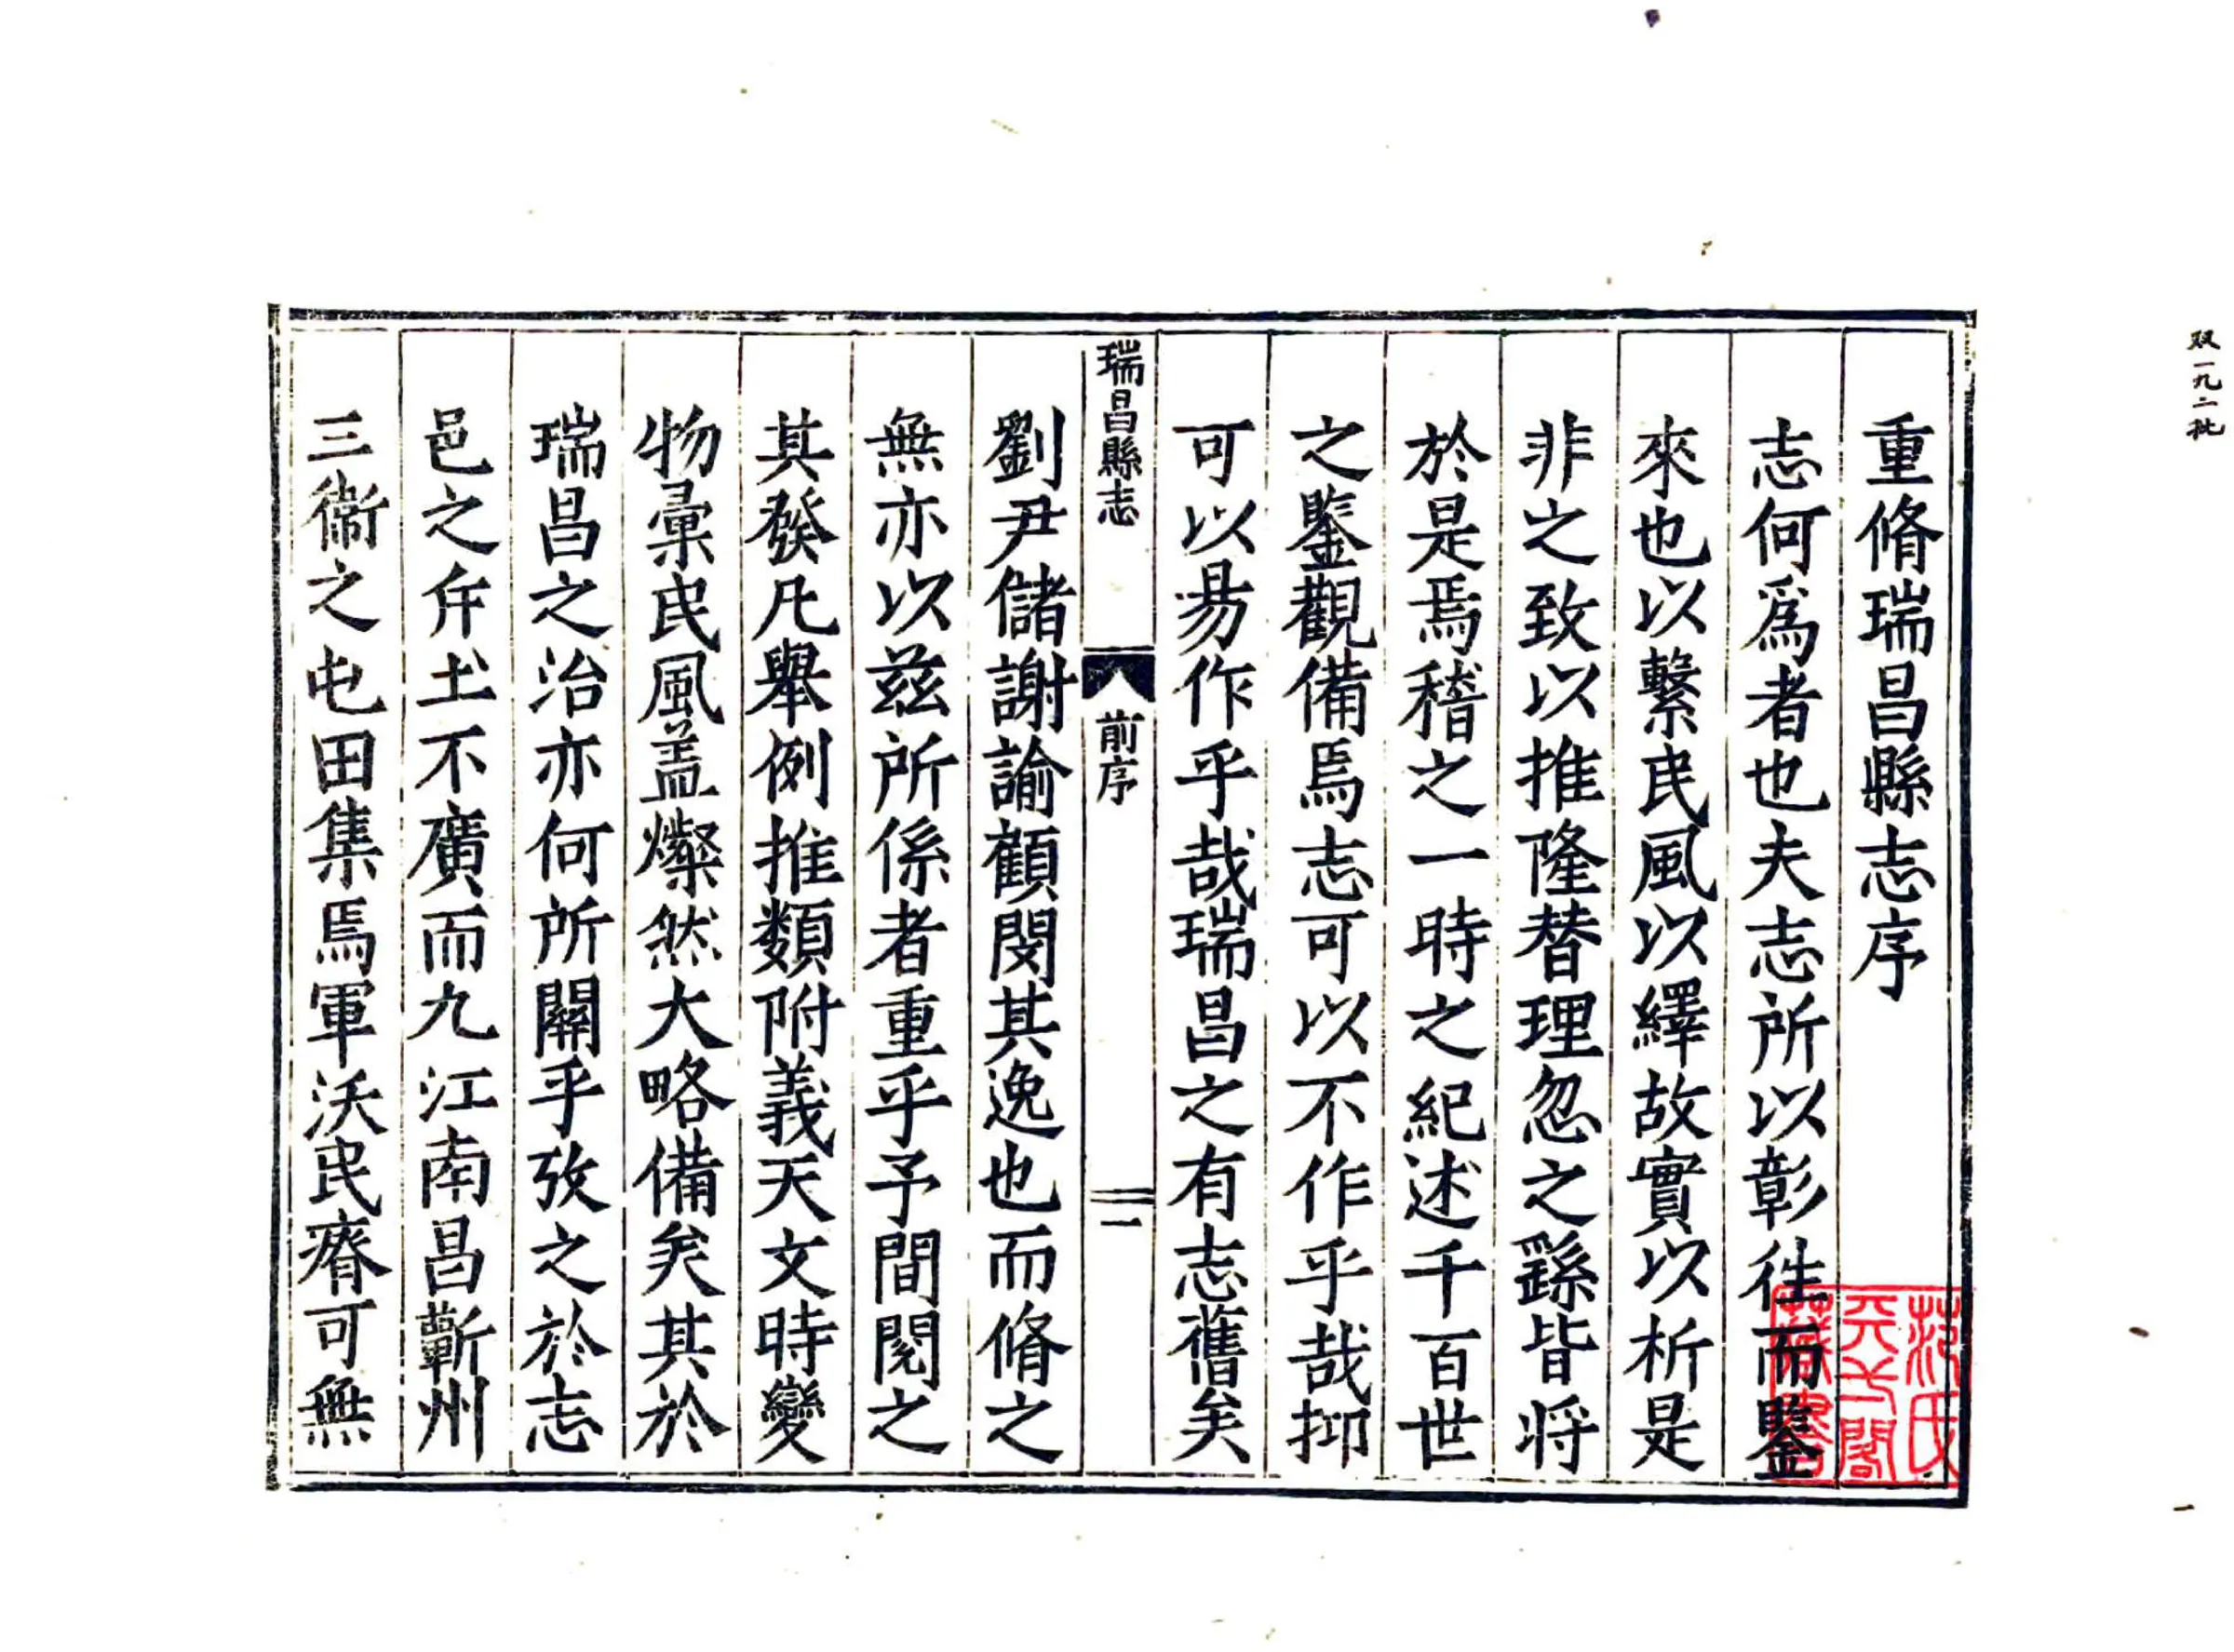 重脩瑞昌縣志序
志何爲者也夫志所以彰徃而鑒
來也以繫民風以繹故實以析是
非之致以推隆替理忽之繇皆将
於是焉稽之一時之紀述千百世
之鑒觀備焉志可以不作乎哉抑
可以易作乎哉瑞昌之有志舊矣
瑞昌縣志
前序
一
劉尹儲謝諭顧閔其逸也而脩之
無亦以兹所係者重乎予間閱之
其發凡舉例推類附義天文時變
物彙民風盖燦然大略備矣其於
瑞昌之治亦何所關乎攷之於志
邑之斥土不廣而九江南昌蘄州
三衞之屯田集焉軍沃民瘠可無
范氏
天一閣
藏書